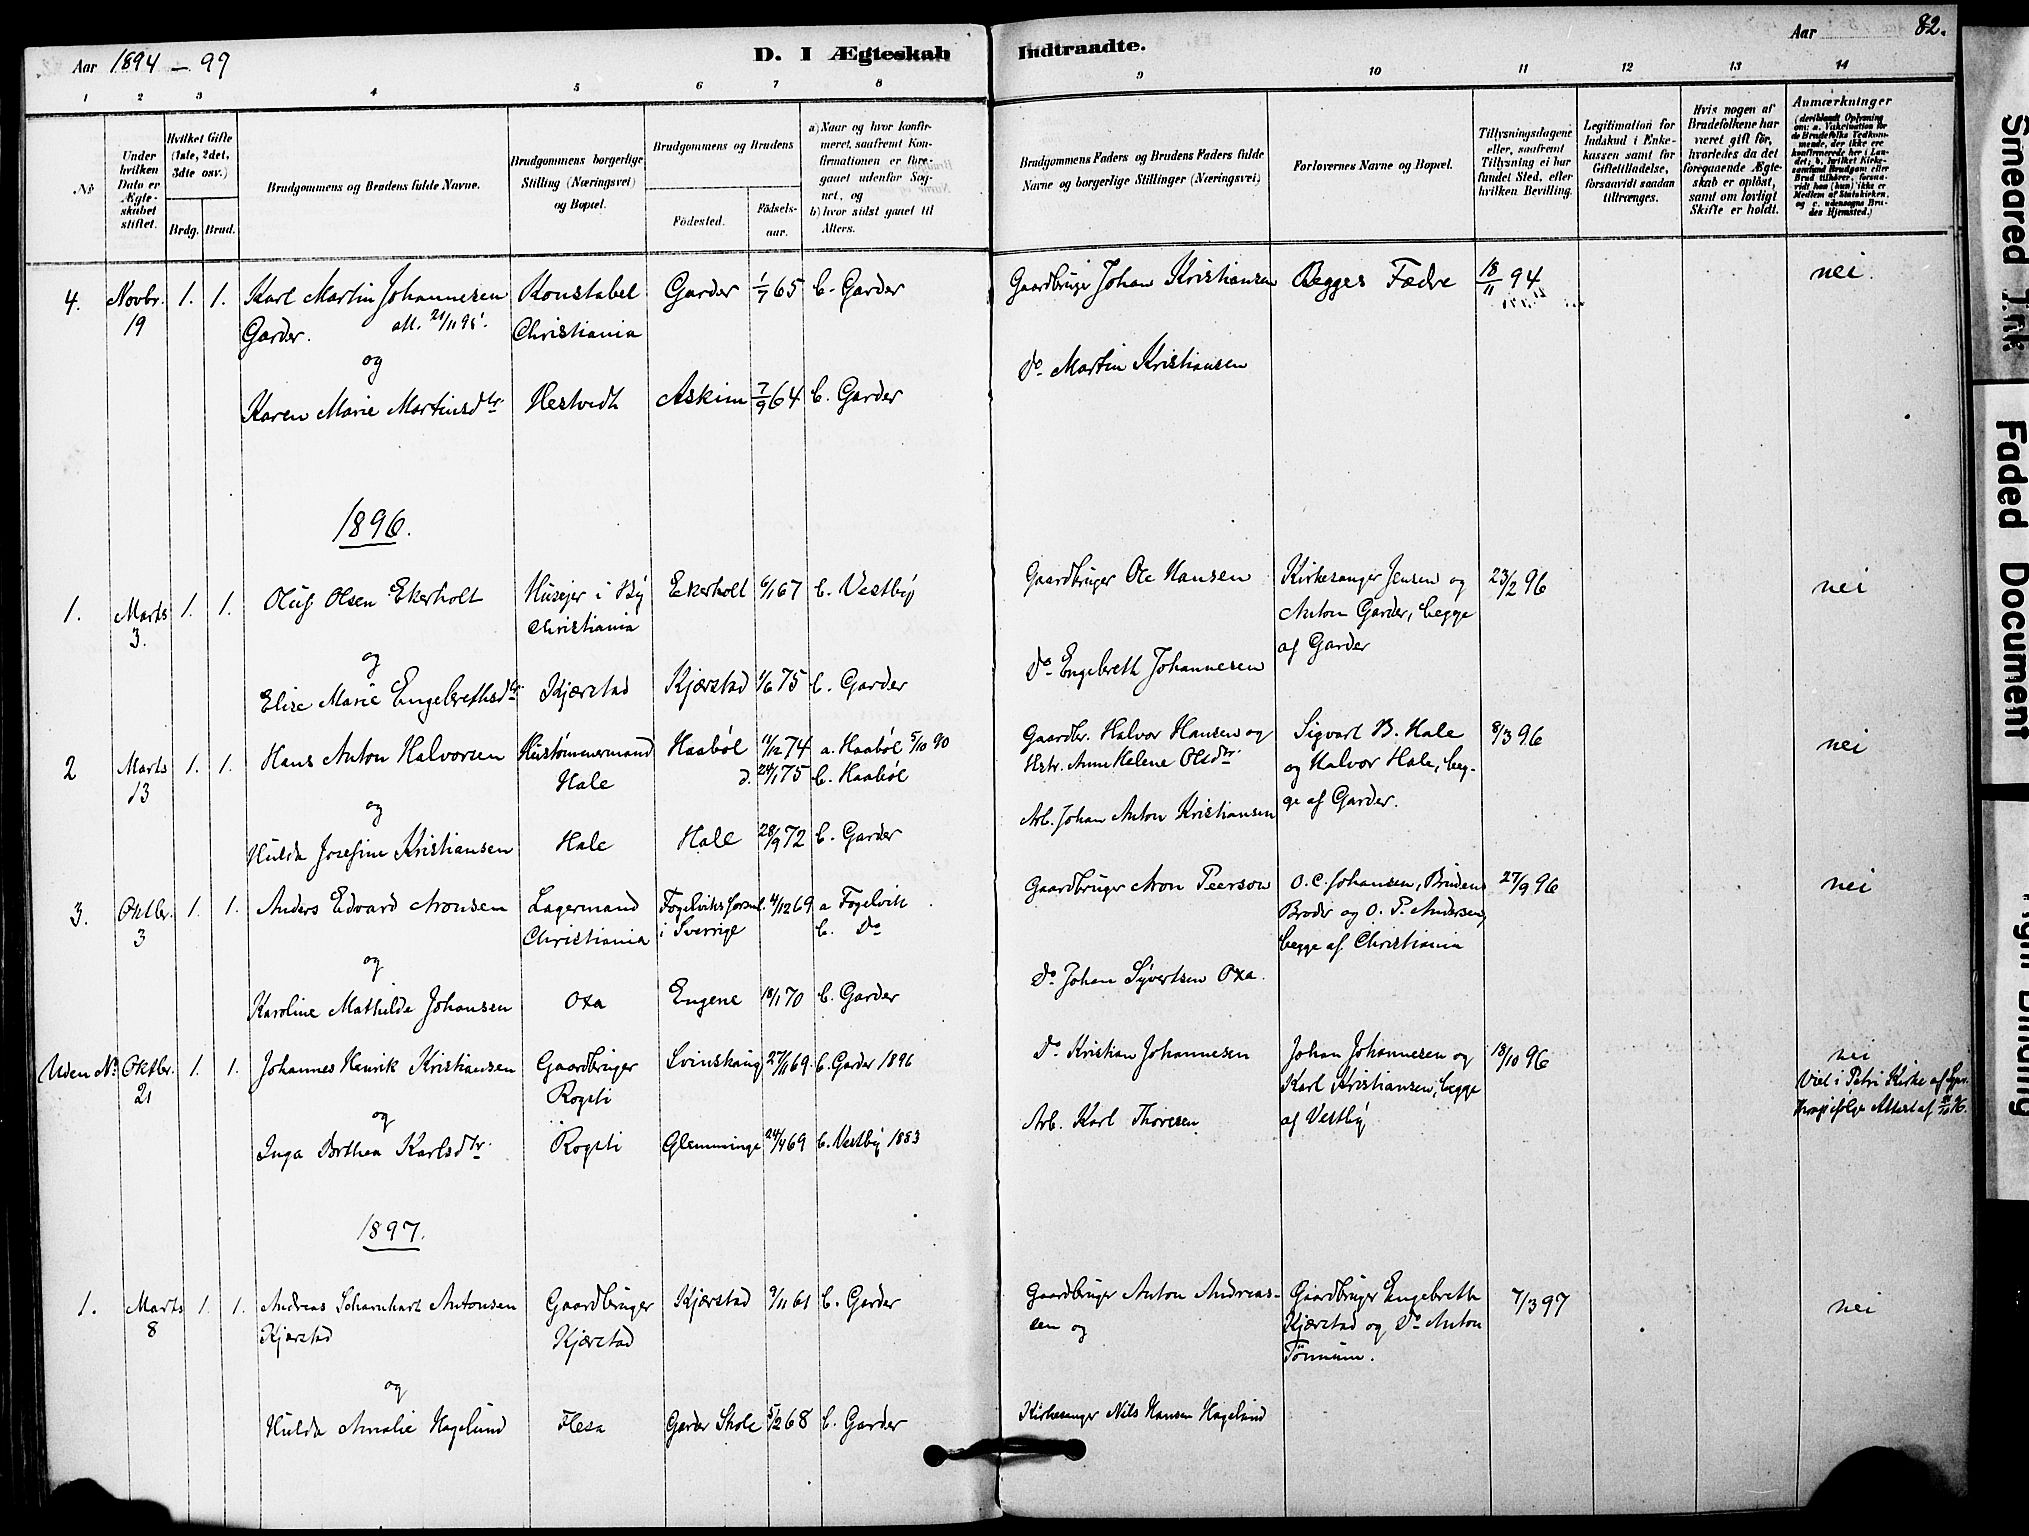 Aar 1894 – 99
D. I Ægteskab Indtraadte.
Aar
82.
1 2 3 4 5 6 7 8 9 10 11 12 13 14
No
Under hvilken Dato er Ægteskabet stiftet.
Hvilket Gifte (1ste, 2det, 3dte osv.)
Brdg. Brud.
Brudgommens og Brudens fulde Navne.
Brudgommens borgerlige Stilling (Næringsvei) og Bopæl.
Brudgommens og Brudens
Födested.
Födsels-aar.
a) Naar og hvor konfirmeret, saafremt Konfirmationen er foregaaet udenfor Sognet, og
b) hvor sidst gaaet til Alters.
Brudgommens Faders og Brudens Faders fulde Navne og borgerlige Stillinger (Næringsvei)
Forlovernes Navne og Bopæl.
Tillysningsdagene eller, saafremt Tillysning ei har fundet Sted, efter hvilken Bevilling.
Legitimation for Indskud i Enkekassen samt for Giftetilladelse, forsaavidt saadan tiltrænges.
Hvis nogen af Brudefolkene har været gift før, hvorledes da det foregaaende Ægteskab er oplöst, samt om lovligt Skifte er holdt.
Anmærkninger
4. Novbr. 19 1. 1. Karl Martin Johannesen Konstabel Garder 1/7 65 b. Garder Gaardbruger Johan Kristiansen Begges Fædre 18/11 94 nei.
Garder. att. 21/11 95. Christiania
og
Do Martin Kristiansen
Karen Marie Martinsdtr Hestvedt Askim 7/9 64 b. Garder
1896.
1. Marts 3. 1. 1. Oluf Olsen Ekerholt Husejer i By Ekerholt 6/1 67 b. Vestby Gaardbruger Ole Hansen Kirkesanger Jensen og 23/2 96 nei
Christiania Anton Garder, begge
af Garder
og
Do Engebreth Johannesen
Elise Marie Engebrethsdtr Kjærstad Kjærstad 1/6 75 b. Garder
2 Marts 13 1. 1. Hans Anton Halvorsen Hustømmermand Haabøl 11/12 74 a. Haabøl 5/10 90 Gaardbr. Halvor Hansen og Sigvart B. Hale 8/3 96 nei
Hale d. 24/1 75 b. Haabøl Hstr. Anne Helene Olsdtr. og Halvor Hale, beg-
ge af Garder.
og
Arb. Johan Anton Kristiansen
Hulda Josefine Kristiansen Hale Hale 28/9 72 b. Garder
3. Oktbr. 3 1. 1. Anders Edvard Aronsen Lagermand 4/12 69 a Fogelvik Gaardbruger Aron Peerson O. C. Johansen, Brudens 27/9 96 nei
Christiania i Sverrige b. Do Broder og O. P. Andersen,
begge af Christiania
og
Do Johan Syvertsen Oxa.
Karoline Mathilde Johansen Oxa Engene 18/1 70 b. Garder
Uden No Oktbr. 21 1. 1. Johannes Henrik Kristiansen Gaardbruger Svinskaug 27/11 69 b. Garder 1896 Do Kristian Johannesen Johan Johannesen og 18/10 96 nei
Rogsti Karl Kristiansen, begge Viet i Petri Kirke af
af Vestby
og
Arb. Karl Thoresen
Inga Dorthea Karlsdtr. Rogsti Glemminge 24/4 69 b. Vestby 1883
1897.
1. Marts 8 1. 1. Andreas Scharnhart Antonsen Gaardbruger Kjærstad 9/11 61 b. Garder Gaardbruger Anton Andreas- Gaardbruger Engebreth 7/3 97 nei
Kjærstad Kjærstad sen og Kjærstad og Do Anton
Tørnum.
og
Hulda Amalie Hagelund Flesa Garder Skole 5/2 68 b. Garder Kirkesanger Nils Hansen Hagelund
Smeared Ink
Faded Document
Tight Binding